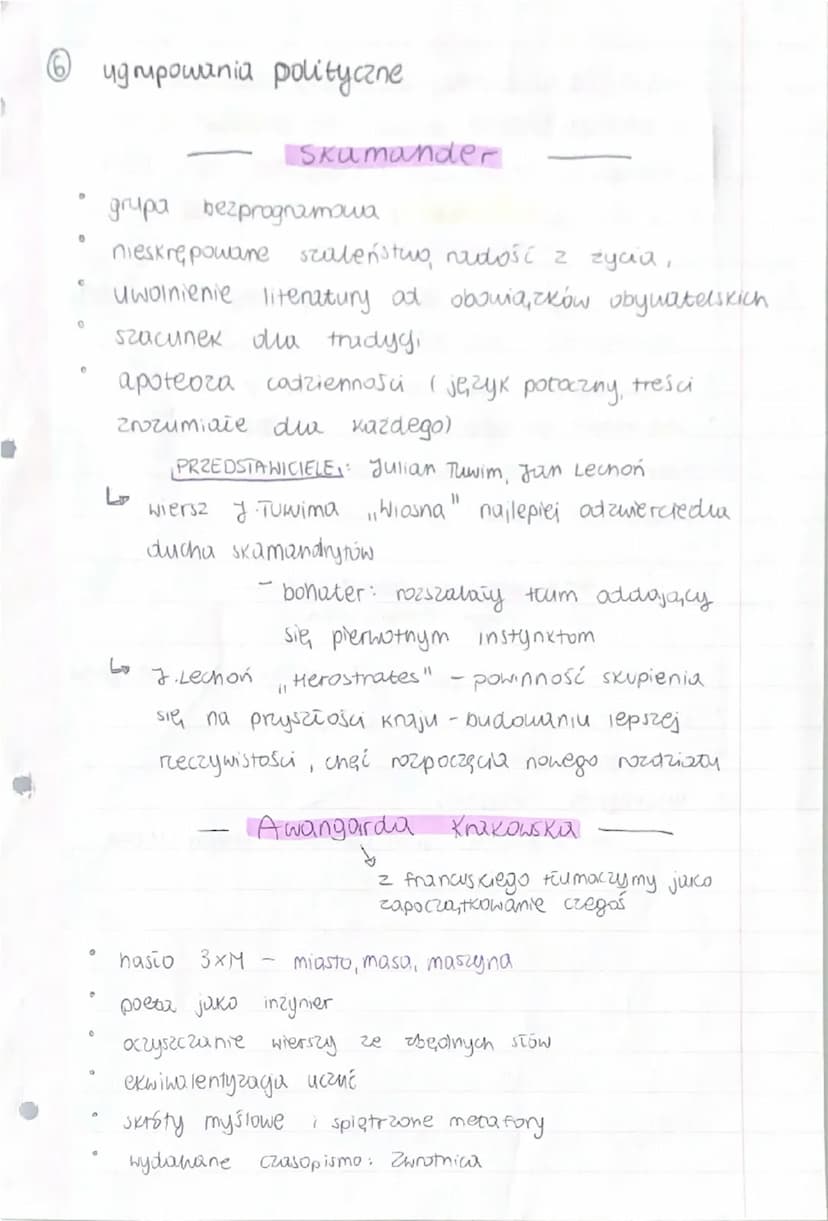 ⑥ ugrupowania polityczne
— Skamander —
• grupa bezprogramowa
• nieskrępowane szaleństwo, radość z życia,
• uwolnienie literatury od obowiązków obywatelskich
• szacunek dla tradycji
• apoteoza codzienności ( język potoczny, treści
zrozumiałe dla każdego)
PRZEDSTAWICIELE: Julian Tuwim, Jan Lechoń
↳ wiersz J. Tuwima „Wiosna" najlepiej odzwierciedla
ducha skamandrytów
- bohater: rozszalały tłum oddający
się pierwotnym instynktom
↳ J. Lechoń „Herostrates" - powinność skupienia
się na przyszłości kraju - budowaniu lepszej
rzeczywistości, chęć rozpoczęcia nowego rozdziału
— Awangarda Krakowska —
↓
z francuskiego tłumaczymy jako
zapoczątkowanie czegoś
• hasło 3xM - miasto, masa, maszyna
• poeta jako inżynier
• oczyszczanie wierszy ze zbędnych słów
• ekwiwalentyzacja uczuć
• skróty myślowe i spiętrzone metafory
• wydawane czasopismo: Zwrotnica